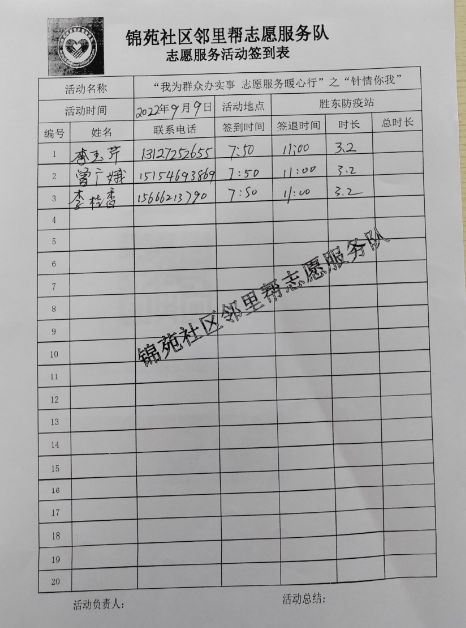 锦苑社区邻里帮志愿服务队
志愿服务活动签到表
活动名称 “我为群众办实事 志愿服务暖心行”之“针情你我”
活动时间 2022年9月9日 活动地点 胜东防疫站
编号 姓名 联系电话 签到时间 签退时间 时长 总时长
1 李玉芹 13127252655 7:50 11:00 3.2
2 曾广娥 15154693869 7:50 11:00 3.2
3 李桂香 15666213790 7:50 11:00 3.2
4
5
6
7
8
9
10
11
12
13
14
15
16
17
18
19
20
锦苑社区邻里帮志愿服务队
活动负责人： 活动总结：